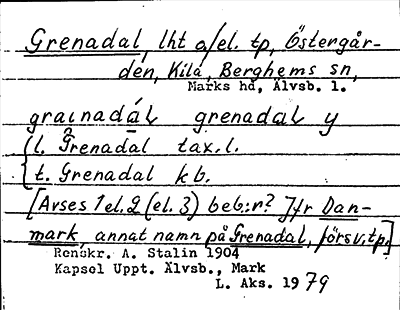 Grenadal, lht o/el. tp, Östergår-
den, Kila, Berghems sn,
Marks hd, Älvsb. l.
graınadál grenadal y
{ l. Grenadal tax.l.
{ t. Grenadal kb.
[Avses 1 el. 2 (el. 3) beb:r? Jfr Dan-
mark, annat namn på Grenadal, försv. tp.]
Renskr. A. Stalin 1904
Kapsel Uppt. Älvsb., Mark
L. Aks. 1979